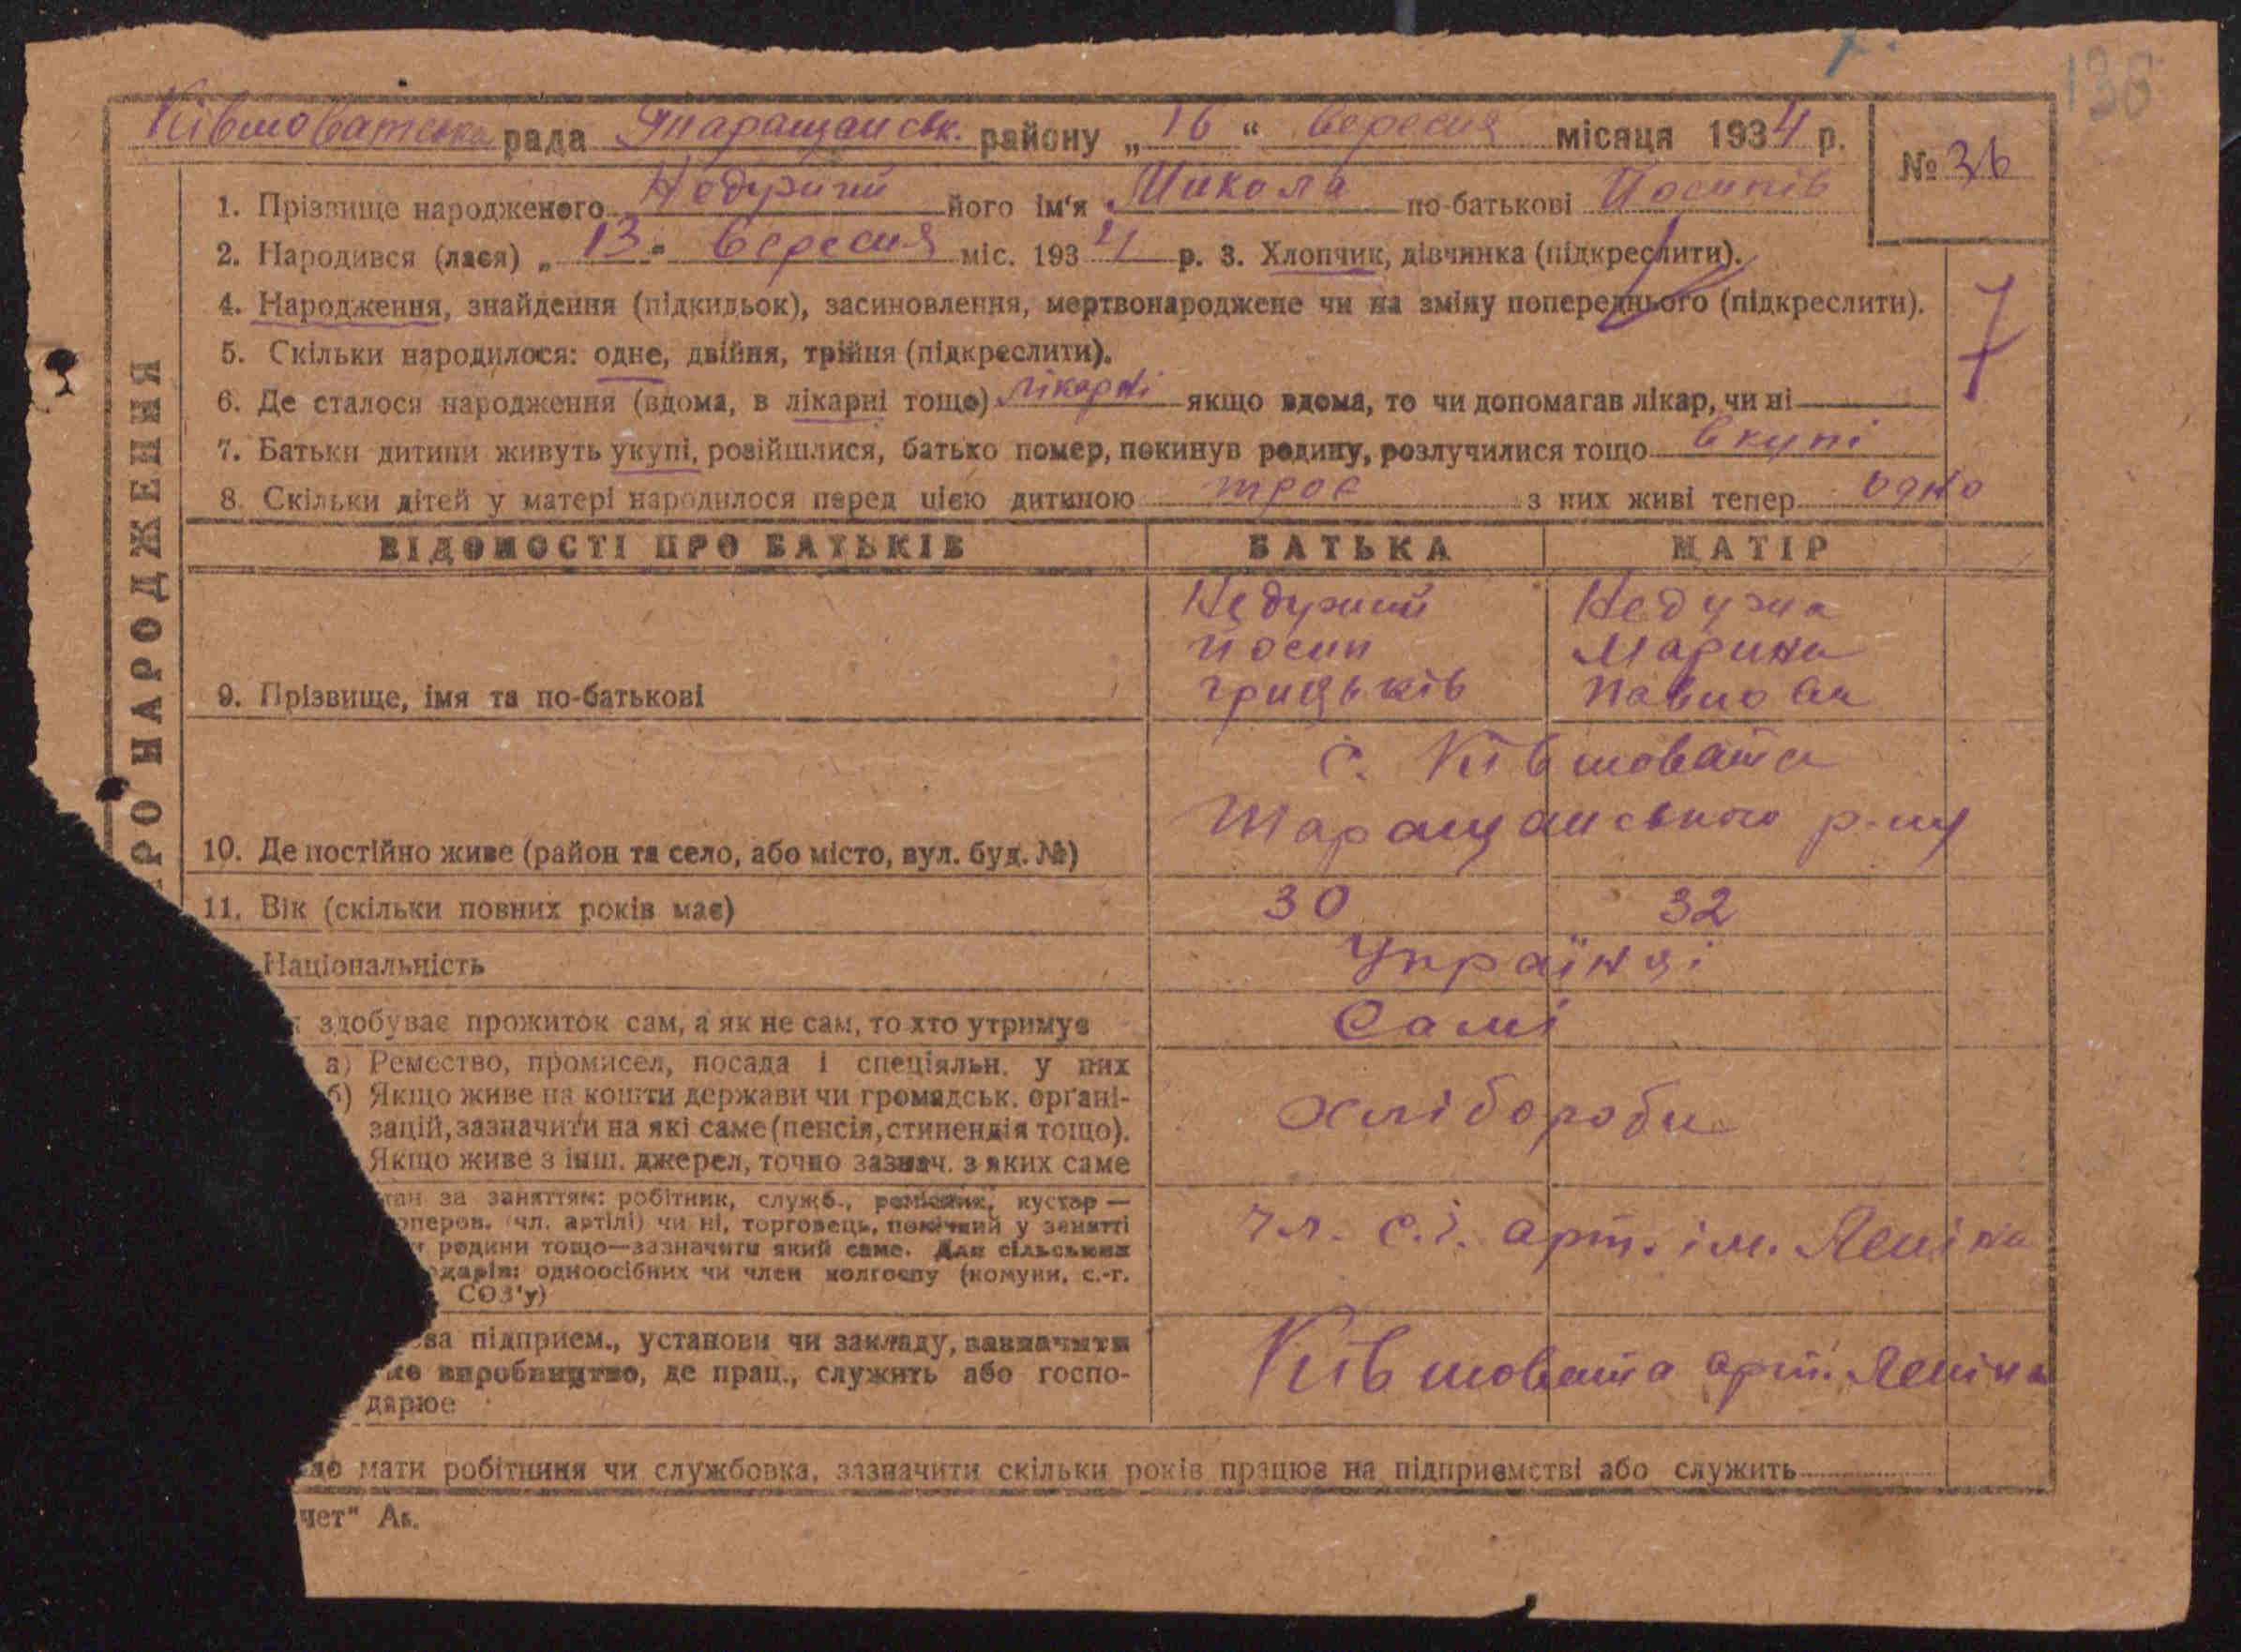 138
Ківшоватська рада Таращанськ. району „ 16 “ вересня місяця 1934 р.
№ 36
1. Прізвище народженого Недужий його ім'я Микола по-батькові Йосипів
2. Народився (лася) „ 13 " вересня міс. 1934 р. 3. Хлопчик, дівчинка (підкреслити).
4. Народження, знайдення (підкидьок), засиновлення, мертвонароджене чи на зміну попереднього (підкреслити).
7
5. Скільки народилося: одне, двійня, трійня (підкреслити).
6. Де сталося народження (вдома, в лікарні тощо) лікарні якщо вдома, то чи допомагав лікар, чи ні
7. Батьки дитини живуть укупі, розійшлися, батько помер, покинув родину, розлучилися тощо вкупі
8. Скільки дітей у матері народилося перед цією дитиною троє з них живі тепер одно
РО НАРОДЖЕННЯ
ВІДОМОСТІ ПРО БАТЬКІВ БАТЬКА МАТІР
Недужий Недужа
Йосип Марина
9. Прізвище, імя та по-батькові Грицьків Павлова
с. Ківшовата
Таращанського р-ну
10. Де постійно живе (район та село, або місто, вул. буд. №)
11. Вік (скільки повних років має) 30 32
Національність Українці
здобуває прожиток сам, а як не сам, то хто утримує Самі
а) Ремество, промисел, посада і спеціяльн. у них
б) Якщо живе на кошти держави чи громадськ. орґані-
зацій, зазначити на які саме (пенсія, стипендія тощо). хлібороби
Якщо живе з інш. джерел, точно зазнач. з яких саме
тан за заняттям: робітник, служб., ремісник, кустар —
оперов. (чл. артілі) чи ні, торговець, помічний у занятті
родини тощо—зазначити який саме. Для сільських чл. с.г. арт. ім. Леніна
дарів: одноосібних чи член колгоспу (комуни, с.-г.
СОЗ'у)
ва підприєм., установи чи закладу, зазначити
ке виробництво, де прац., служить або госпо- Ківшовата арт. Леніна
дарює
що мати робітниця чи службовка, зазначити скільки років працює на підприємстві або служить
чет" Ак.